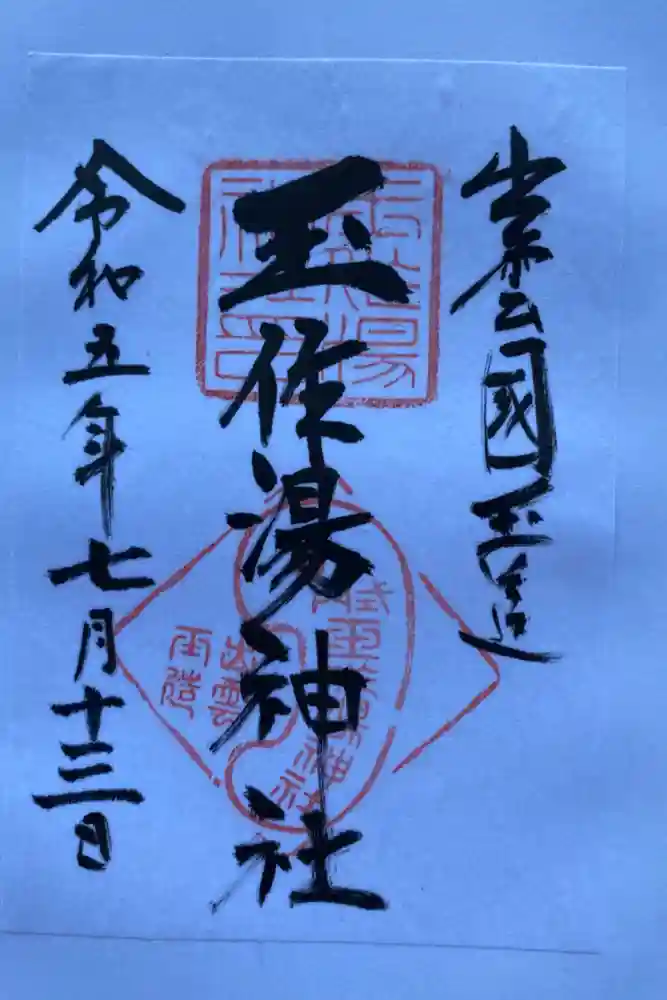 出雲國玉造
玉作湯神社
令和五年七月十三日
出雲
玉造